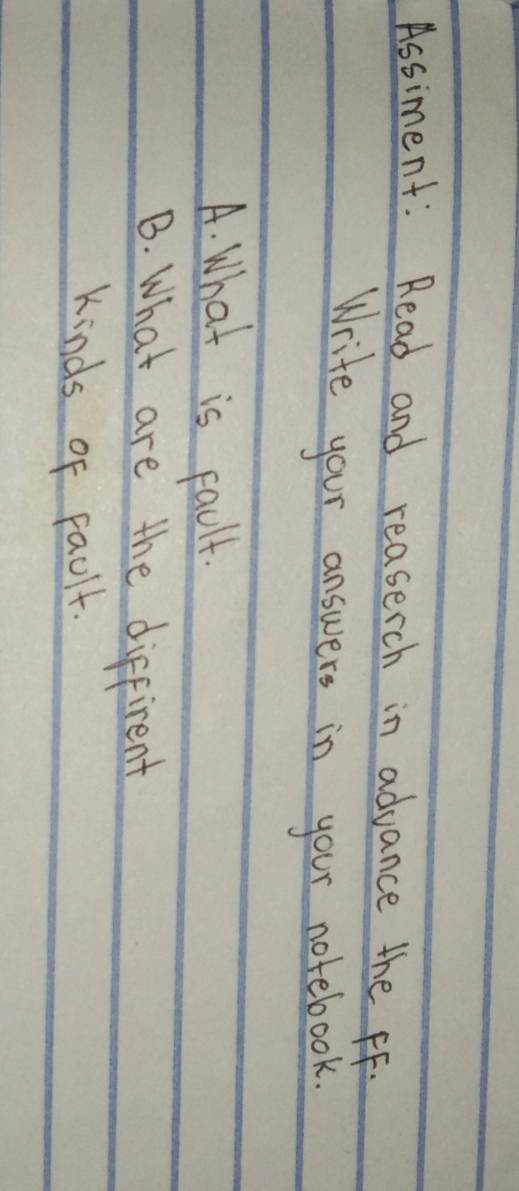 Assiment: Read and reaserch in advance the FF.
Write your answers in your notebook.
A. What is fault.
B. What are the diffirent
kinds of fault.